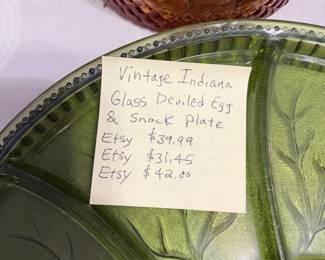 Vintage Indiana
Glass Deviled Egg
& Snack Plate
Etsy $39.99
Etsy $31.45
Etsy $42.00